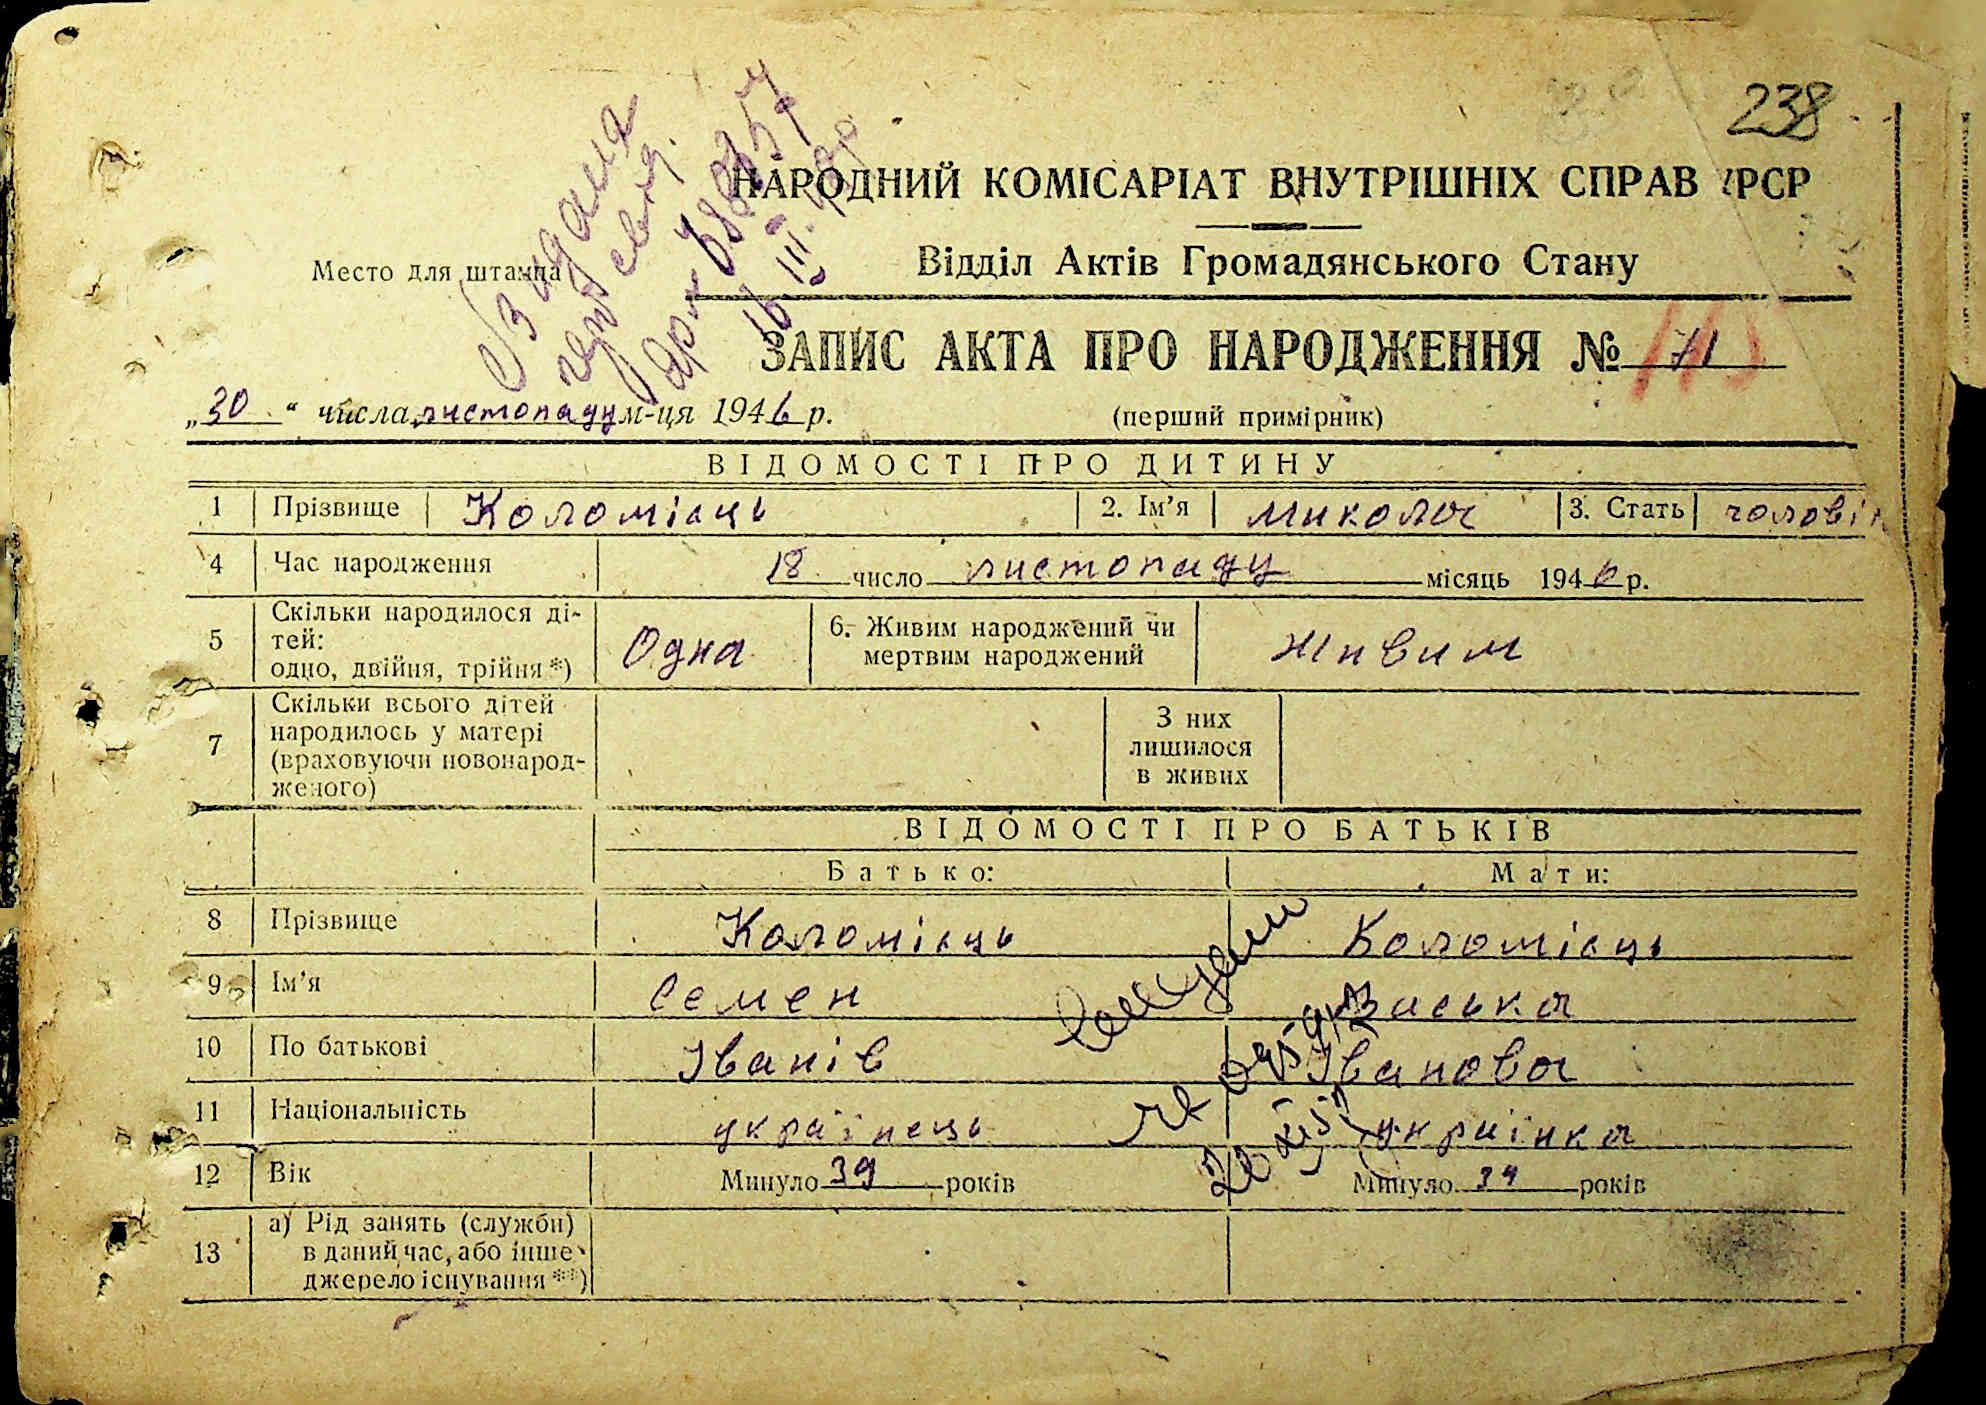 238
НАРОДНИЙ КОМІСАРІАТ ВНУТРІШНІХ СПРАВ УРСР
Место для штампа
Відділ Актів Громадянського Стану
Видана
ЗАПИС АКТА ПРО НАРОДЖЕННЯ № 71
„30“ числа листопаду м-ця 1946 р.
(перший примірник)
ВІДОМОСТІ ПРО ДИТИНУ
1 Прізвище Коломієць 2. Ім'я Микола 3. Стать чолові
4 Час народження 18 число листопаду місяць 1946 р.
5 Скільки народилося ді-
тей:
одно, двійня, трійня*) Одна 6. Живим народжений чи
мертвим народжений Живим
7 Скільки всього дітей
народилось у матері
(враховуючи новонарод-
женого)
З них
лишилося
в живих
ВІДОМОСТІ ПРО БАТЬКІВ
Батько: Мати:
8 Прізвище Коломієць Коломієць
9 Ім'я Семен Васька
10 По батькові Іванів Іванова
11 Національність українець українка
12 Вік Минуло 39 років Минуло 34 років
13 а) Рід занять (служби)
в даний час, або інше
джерело існування**)